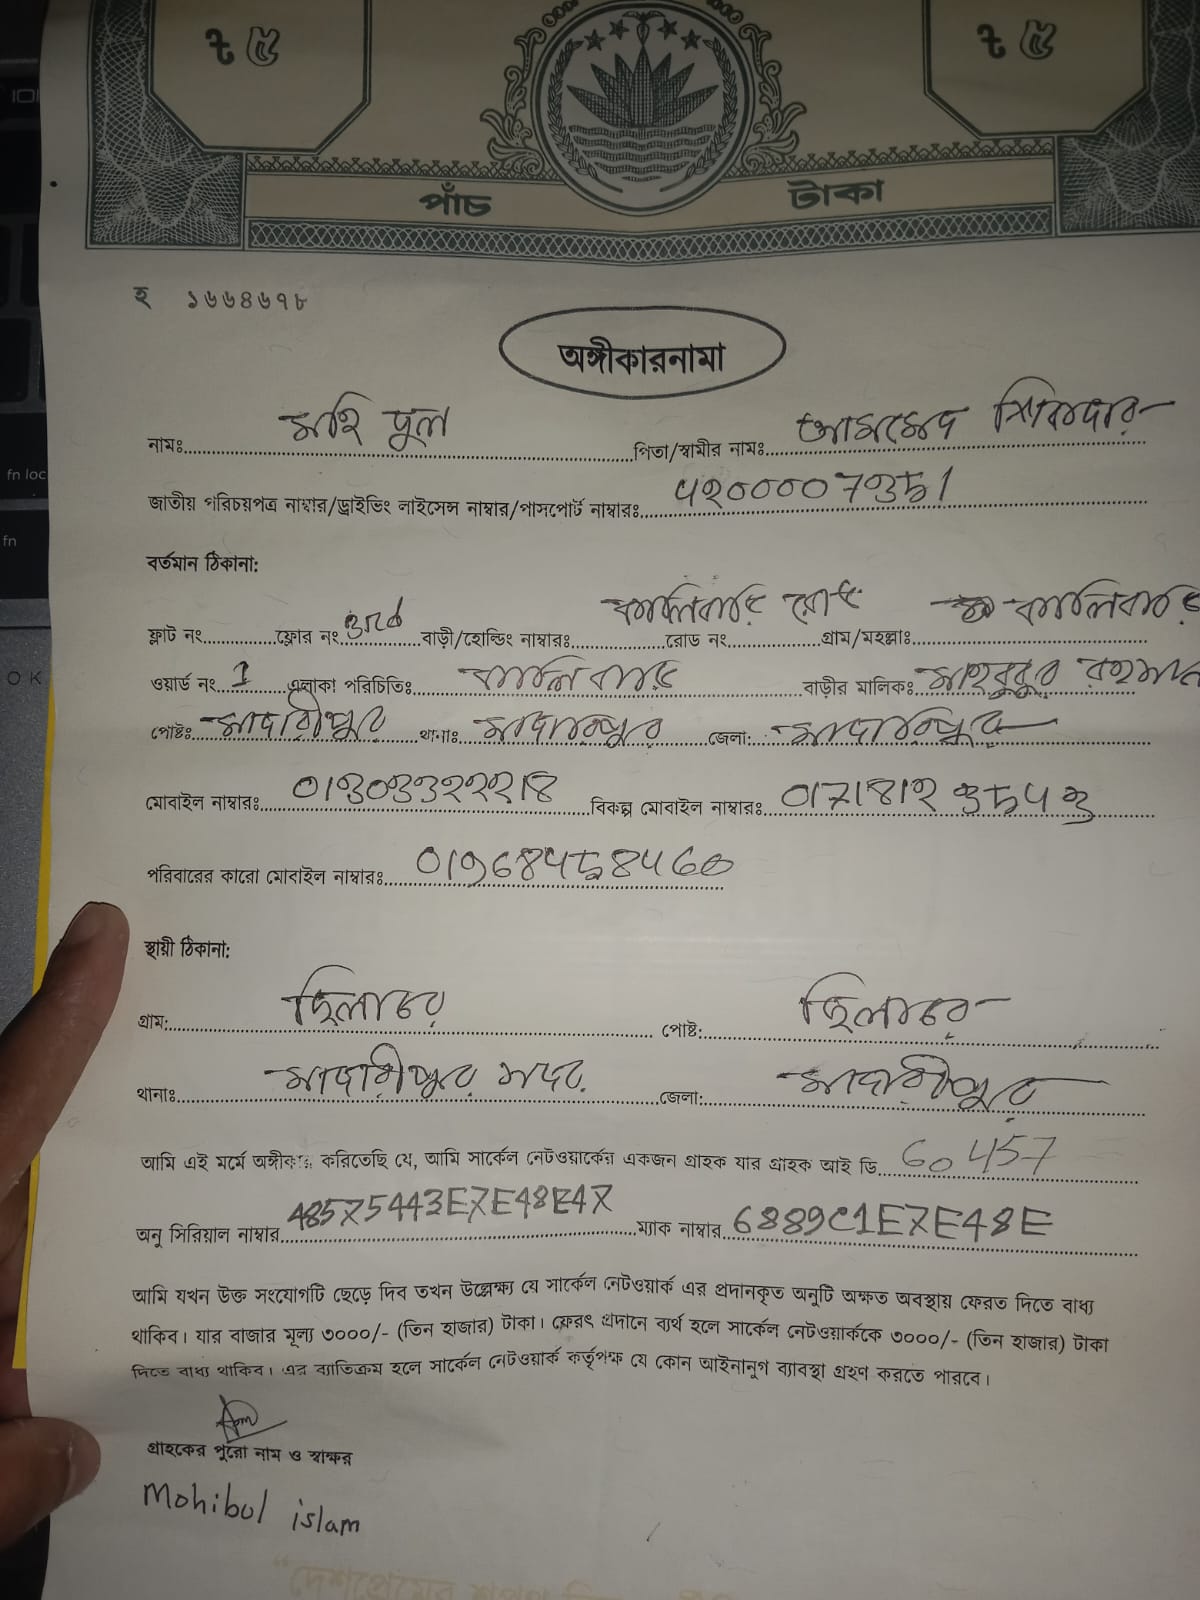 ৳ ৫ ৳ ৫
পাঁচ টাকা
হ ১৬৬৪৬৭৮
অঙ্গীকারনামা
নামঃ মহি দুল পিতা/স্বামীর নামঃ আমমেদ শিকদার
জাতীয় পরিচয়পত্র নাম্বার/ড্রাইভিং লাইসেন্স নাম্বার/পাসপোর্ট নাম্বারঃ
বর্তমান ঠিকানা:
ফ্লাট নং ফ্লোর নং 3rd বাড়ী/হোল্ডিং নাম্বারঃ রোড নং গ্রাম/মহল্লাঃ
ওয়ার্ড নং 1 এলাকা পরিচিতিঃ বাড়ীর মালিকঃ মাহবুবুর রহমান
পোষ্টঃ মাদারীপুর থানাঃ মাদারিপুর জেলা: মাদারিপুর
মোবাইল নাম্বারঃ বিকল্প মোবাইল নাম্বারঃ
পরিবারের কারো মোবাইল নাম্বারঃ
স্থায়ী ঠিকানা:
গ্রাম: ছিলারচর পোষ্ট: ছিলারচর
থানাঃ মাদারীপুর সদর জেলা: মাদারীপুর
আমি এই মর্মে অঙ্গীকার করিতেছি যে, আমি সার্কেল নেটওয়ার্কের একজন গ্রাহক যার গ্রাহক আই ডি 60457
অনু সিরিয়াল নাম্বার 48575443E7E48E47 ম্যাক নাম্বার 6889C1E7E48E
আমি যখন উক্ত সংযোগটি ছেড়ে দিব তখন উল্লেক্ষ্য যে সার্কেল নেটওয়ার্ক এর প্রদানকৃত অনুটি অক্ষত অবস্থায় ফেরত দিতে বাধ্য
থাকিব। যার বাজার মূল্য ৩০০০/- (তিন হাজার) টাকা। ফেরৎ প্রদানে ব্যর্থ হলে সার্কেল নেটওয়ার্ককে ৩০০০/- (তিন হাজার) টাকা
দিতে বাধ্য থাকিব। এর ব্যাতিক্রম হলে সার্কেল নেটওয়ার্ক কর্তৃপক্ষ যে কোন আইনানুগ ব্যাবস্থা গ্রহণ করতে পারবে।
গ্রাহকের পুরো নাম ও স্বাক্ষর
Mohibul islam